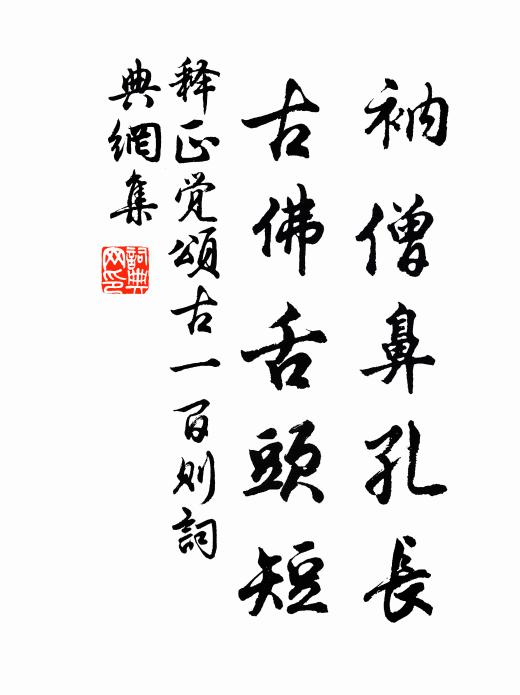 衲僧鼻孔長
古佛舌頭短
释正觉頌古一百则詞
典網集
詞典网印